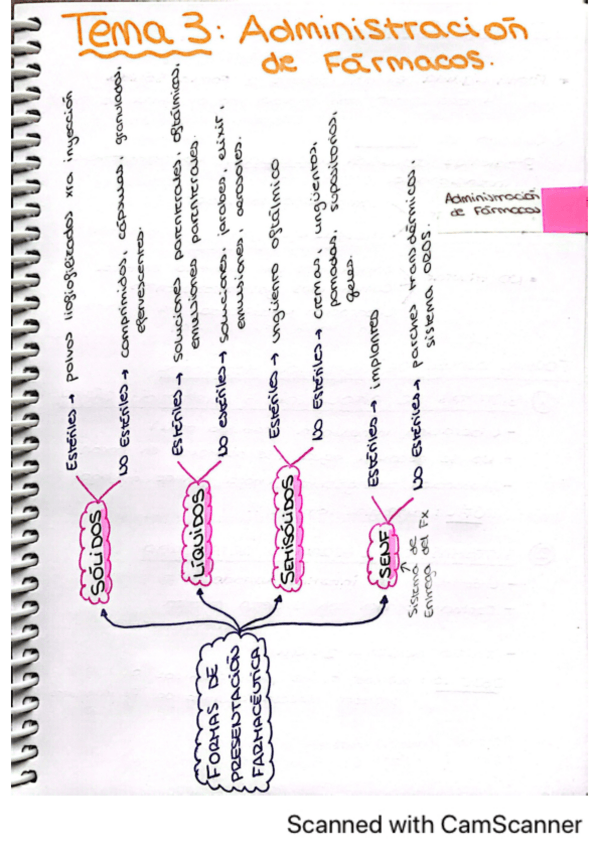 Tema 3: Administración
de Fármacos.
Administración
de Fármacos
FORMAS DE
PRESENTACIÓN
FARMACÉUTICA
SÓLIDOS
Estériles → polvos liofilizados xra inyección
No Estériles → comprimidos, cápsulas, granulados,
efervescentes.
LÍQUIDOS
Estériles → soluciones parenterales, oftálmicas,
emulsiones parenterales
No estériles → soluciones, jarabes, elixir,
emulsiones, aerosoles.
SEMISÓLIDOS
Estériles → ungüento oftálmico
No Estériles → cremas, ungüentos,
pomadas, supositorios,
geles.
SENF
↑
Sistema de
Entrega del Fx
Estériles → implantes
No Estériles → parches transdérmicos,
sistema OROS.
Scanned with CamScanner